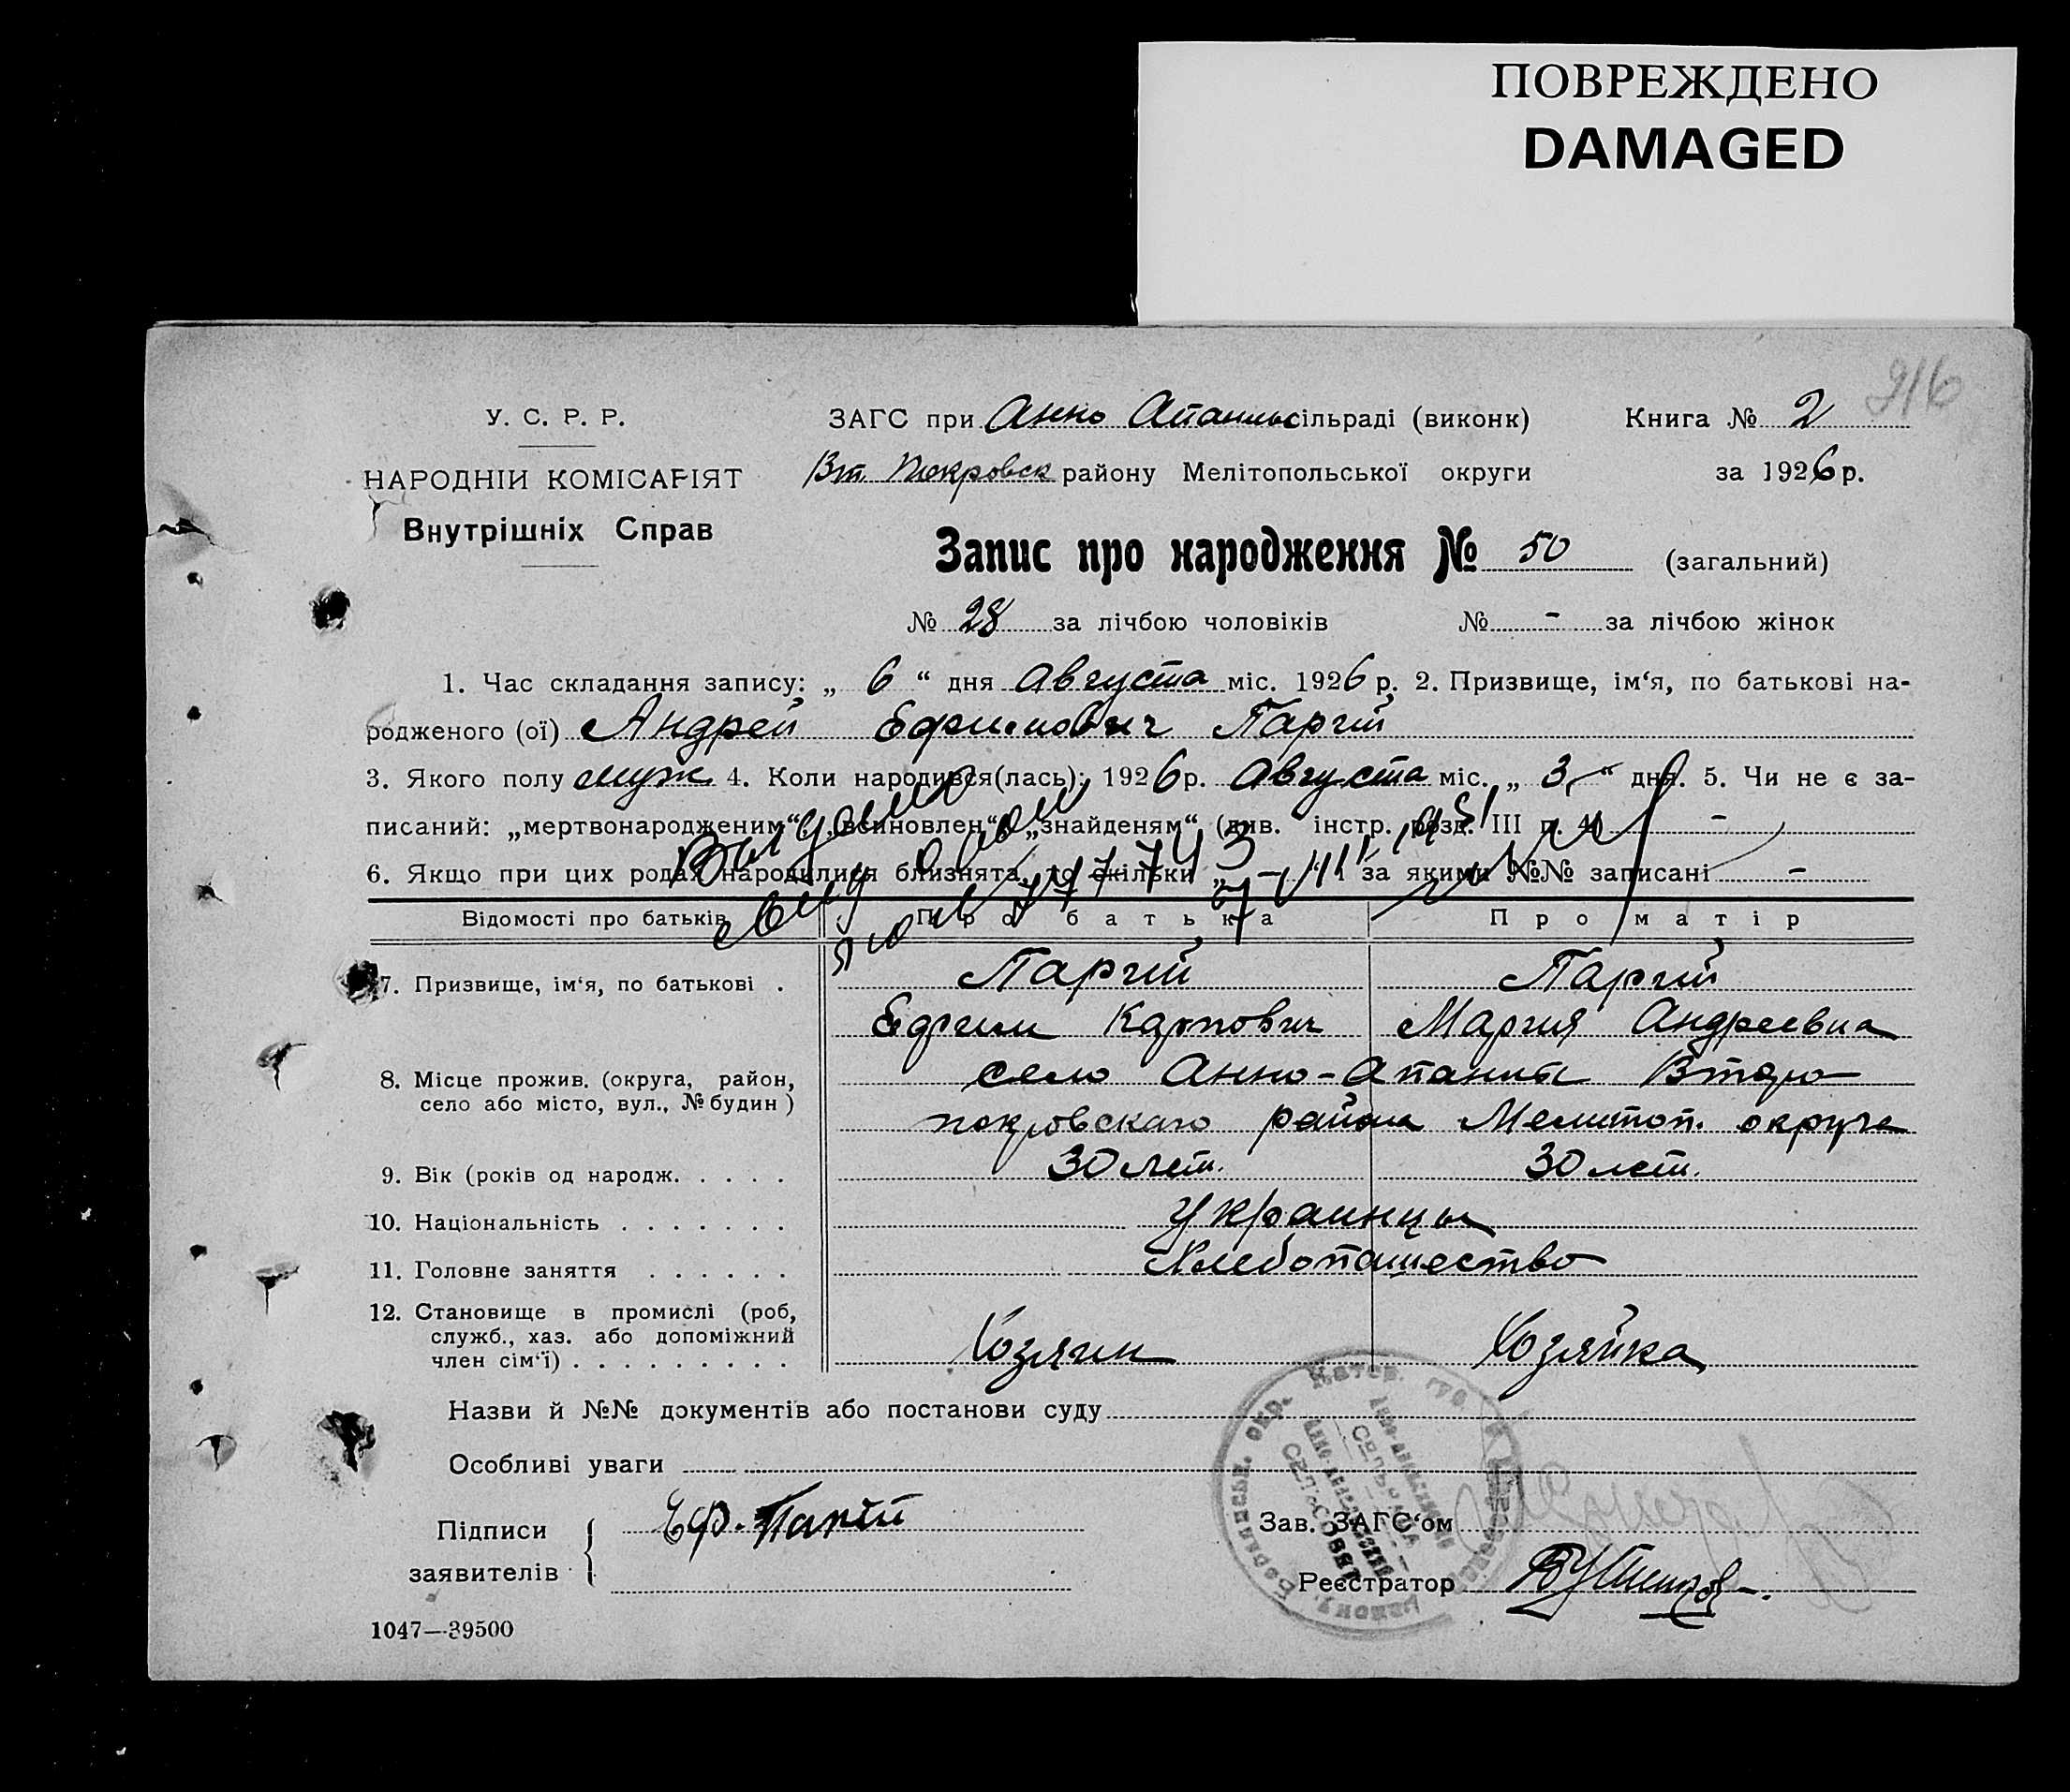 ПОВРЕЖДЕНО
DAMAGED
916
У. С. Р. Р.
ЗАГС при Анно Апаньс сільраді (виконк)
Книга № 2
НАРОДНІЙ КОМІСАРІЯТ
Вт. Покровск району Мелітопольської округи
за 1926 р.
Внутрішніх Справ
Запис про народження № 50 (загальний)
№ 28 за лічбою чоловіків № - за лічбою жінок
1. Час складання запису: „ 6 “ дня Августа міс. 1926 р. 2. Призвище, ім‘я, по батькові на-
родженого (ої) Андрей Ефимович Паргий
3. Якого полу муж. 4. Коли народився(лась): 1926 р. Августа міс. „ 3 “ дня. 5. Чи не є за-
писаний: „мертвонародженим“, „всиновлен“, „знайденям“ (див. інстр. розд. III п. 4) -
6. Якщо при цих родах народилися близнята, то скільки „ - “ і за якими №№ записані -
Відомості про батьків Про батька Про матір
7. Призвище, ім‘я, по батькові . Паргий Паргий
Ефим Карпович Мария Андреевна
8. Місце прожив. (округа, район, село Анно-Апанит Второ
село або місто, вул., № будин)
покровскаго района Мелитоп. округа
9. Вік (років од народж. . . . . 30 лет. 30 лет.
10. Національність . . . . . . . Украинцы
11. Головне заняття . . . . . . Хлебопашество
12. Становище в промислі (роб,
служб., хаз. або допоміжний
член сім‘ї) . . . . . . . . . Хозяин Хозяйка
Назви й №№ документів або постанови суду
Особливі уваги
Підписи Еф. Паргий
заявителів
Зав. ЗАГС‘ом
Реєстратор
1047—39500